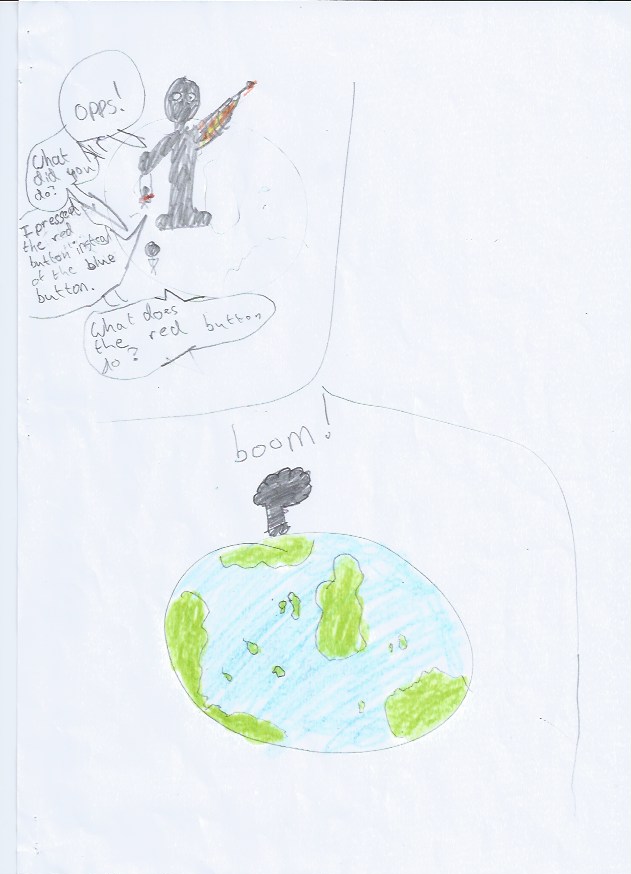 opps!
What
did you
do?
I pressed
the red
button instead
of the blue
button.
What does
the red button
do?
boom!